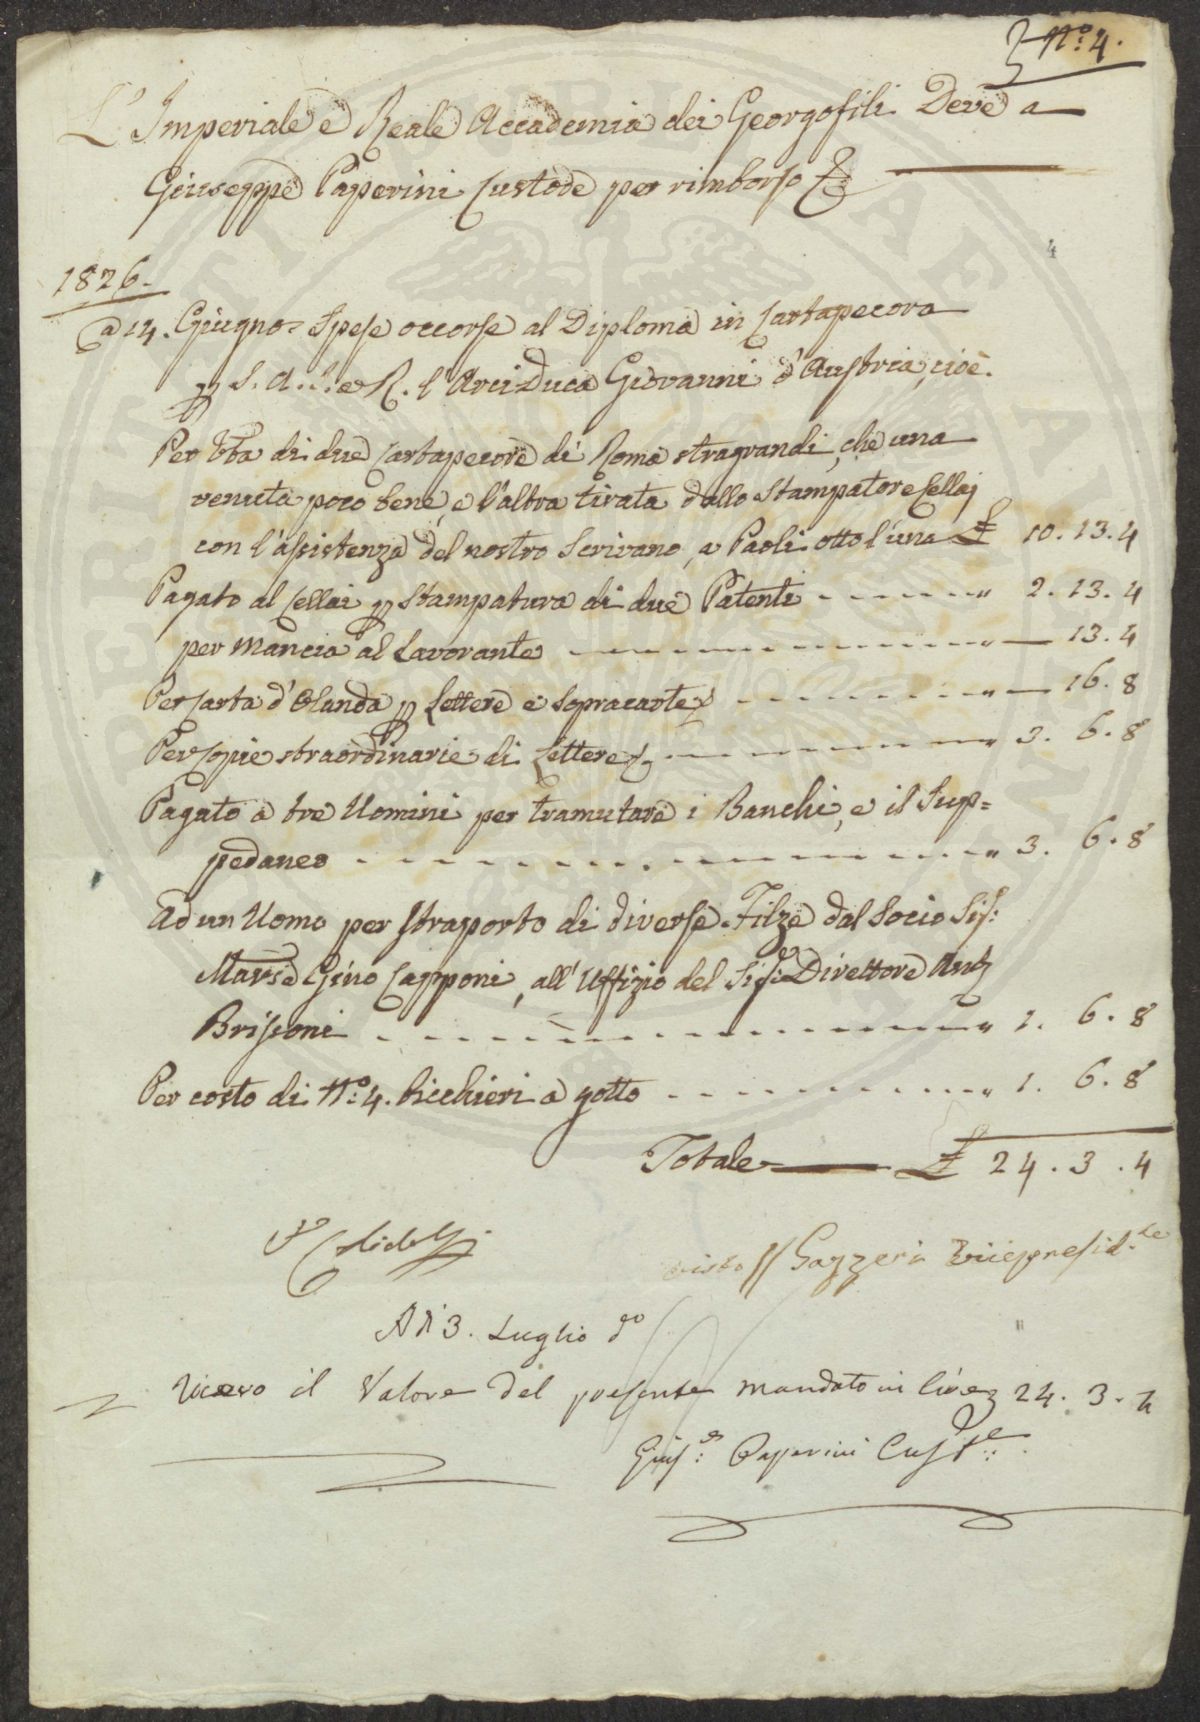 N.º 4.
L'Imperiale e Reale Accademia dei Georgofili Deve a
Giuseppe Paperini Custode per rimborso
4
1826.
a 14. Giugno= Spese occorse al Diploma in Cartapecora
p S. A. I. e R. l'Arciduca Giovanni d'Austria, cioè.
Per di due Cartapecore di Roma stragrandi, che una
venuta poco bene, e l'altra tirata dallo Stampatore Cellai
con l'assistenza del nostro Scrivano, a Paoli otto l'una £ 10. 13. 4
Pagato al Cellai p Stampatura di due Patenti " 2. 13. 4
per mancia al Lavorante " — 13. 4
Per Carta d'Olanda p Lettere e Sopracarte " — 16. 8
Per Copie straordinarie di Lettere " 3. 6. 8
Pagato a tre Uomini per tramutare i Banchi, e il Sup=
pedaneo " 3. 6. 8
Ad un Uomo per strasporto di diverse Filze dal Socio Sig:
Marse Gino Capponi, all'Uffizio del Sig: Direttore
Brissoni " 1. 6. 8
Per costo di N.º 4. bicchieri a gotto " 1. 6. 8
Totale £ 24. 3. 4
visto Gazzeri Vicepresid.te
A dì 3. Luglio do
Ricevo il Valore del presente mandato in lire 24. 3. 4
Gius.e Paperini Cust.e